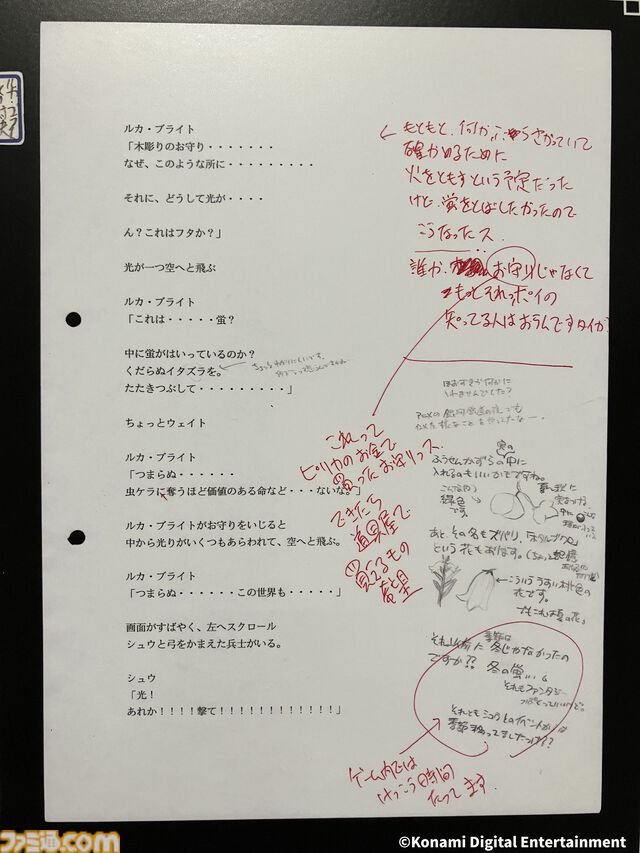 ルカ・ブライト
「木彫りのお守り・・・・・・・
なぜ、このような所に・・・・・・・・・
それに、どうして光が・・・・
ん?これはフタか?」
光が一つ空へと飛ぶ
ルカ・ブライト
「これは・・・・・蛍?
中に蛍がはいっているのか?
くだらぬイタズラを。
たたきつぶして・・・・・・・・・」
ちょっとウェイト
ルカ・ブライト
「つまらぬ・・・・・・
虫ケラに奪うほど価値のある命など・・・ないな。」
ルカ・ブライトがお守りをいじると
中から光りがいくつもあらわれて、空へと飛ぶ。
ルカ・ブライト
「つまらぬ・・・・・・この世界も・・・・・」
画面がすばやく、左へスクロール
シュウと弓をかまえた兵士がいる。
シュウ
「光!
あれか!!!!撃て!!!!!!!!!!!!」
もともと、何かぶらさがっていて
確かめるために
火をともすという予定だった
けど、蛍をとばしたかったので
こうなったス.
誰か
お守りじゃなくて
もっとそれっポイの
知ってる人はおらんですタイか?
これって
ピリカのお金で
買ったお守りっス.
できたら
道具屋で
買えるもの
ほおずきか何かに
いれませんでした?
ふうせんかずらの中に
入れるのもいいかもですね。
こんなかの
緑色
です。
という花もおます。
こういううすい桃色の
花です。
でもこれは夏の花。
それ以前に
季節は
冬じゃなかったの
ですか??
冬の蛍…
それもファンタジー
っぽくっていいけど。
ゲーム内では
けっこう時間
たってます.
ファミ通.com
©Konami Digital Entertainment